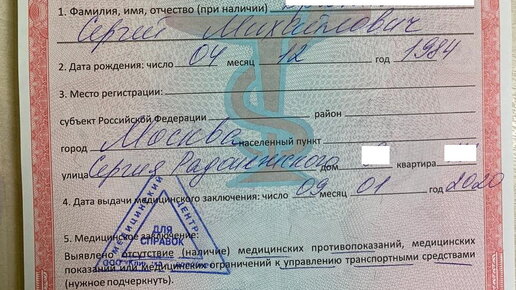 1. Фамилия, имя, отчество (при наличии)
Сергей Михайлович
2. Дата рождения: число 04 месяц 12 год 1984
3. Место регистрации:
субъект Российской Федерации район
город Москва населенный пункт
улица Сергия Радонежского дом квартира
4. Дата выдачи медицинского заключения: число 09 месяц 01 год 2020
МЕДИЦИНСКИЙ ЦЕНТР
ДЛЯ
СПРАВОК
ООО
5. Медицинское заключение:
Выявлено отсутствие (наличие) медицинских противопоказаний, медицинских
показаний или медицинских ограничений к управлению транспортными средствами
(нужное подчеркнуть).